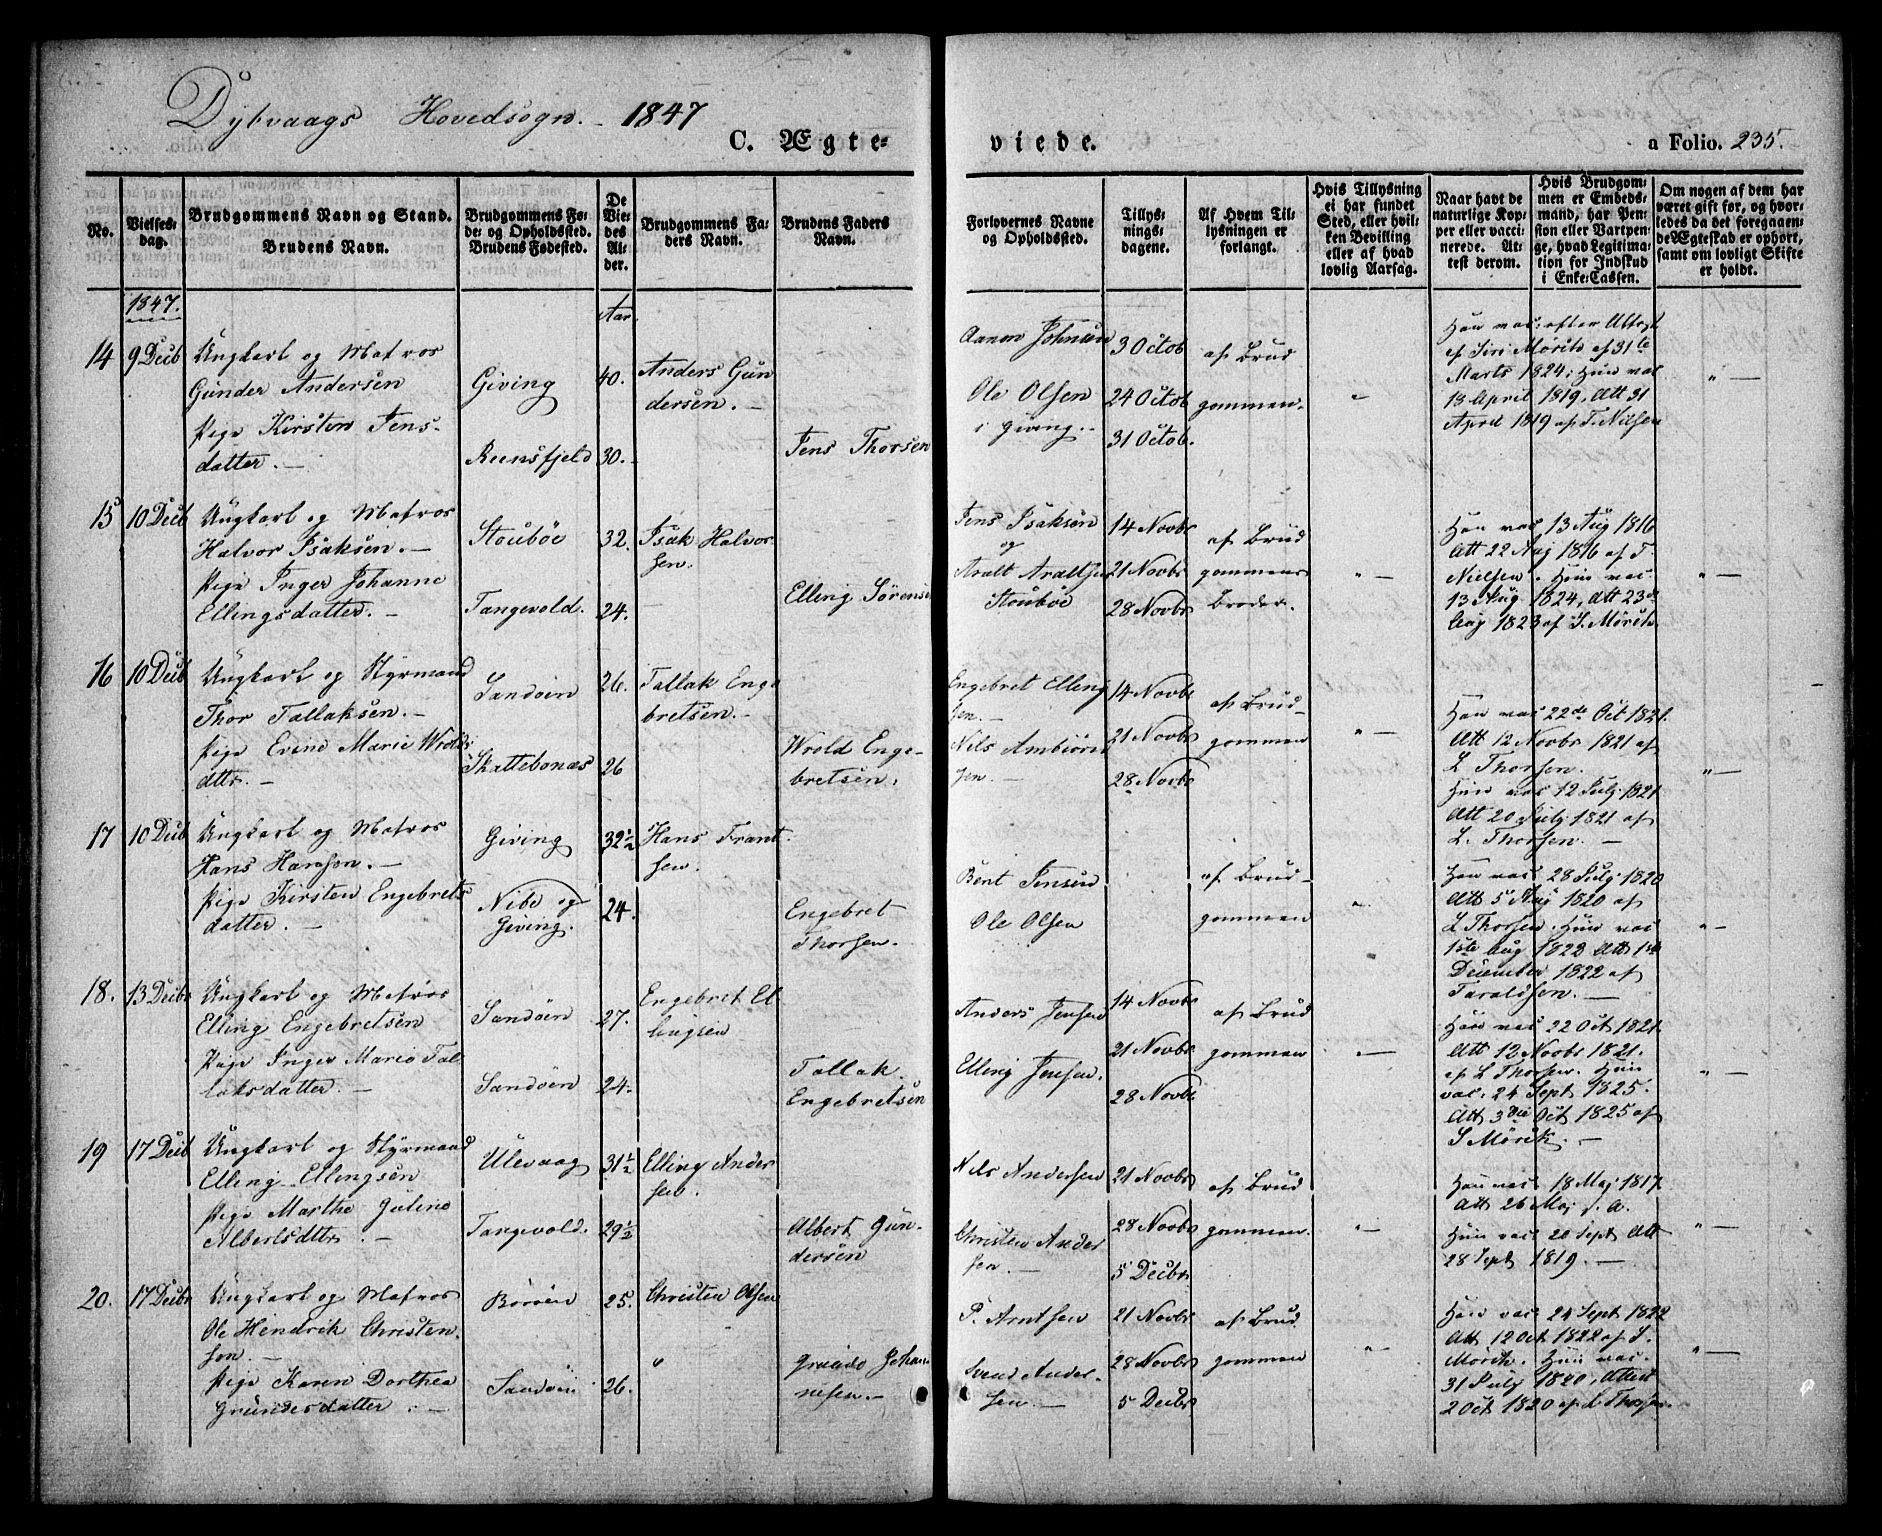 Dybvaags Hovedsogn. 1847
C. Ægteviede.
a Folio. 235.
No.
Vielsesdag.
Brudgommens Navn og Stand.
Brudens Navn.
Brudgommens Føde- og Opholdsted.
Brudens Fødested.
De Viedes Alder.
Brudgommens Faders Navn.
Brudens Faders Navn.
Forlovernes Navne og Opholdssted.
Tillysningsdagene.
Af Hvem Tillysningen er forlangt.
Hvis Tillysning ei har fundet Sted, eller hvilken Bevilling eller af hvad lovlig Aarsag.
Naar havt de naturlige Kopper eller vaccinerede. Attest derom.
Hvis Brudgommen er Embedsmand, har Pension eller Vartpenge, hvad Legitimation for Indskud i Enke-Cassen.
Om nogen af dem har været gift før, og hvorledes da det foregaaende Ægteskab er ophørt, samt om lovligt Skifte er holdt.
1847.
Aar.
14 9 Decb Ungkarl og Matros
Gunder Andersen
Pige Kirsten Jens-
datter. —
Giving
Reensfjeld
40.
30.
Anders Gun
dersen. —
Jens Thorsen
Aanon Johnsen
Ole Olsen
i Giving. -
3 Octob
24 Octob
31 Octob.
af Brud
gommen
Han vac: efter Attest
af Siri Mörik af 31te
Marts 1824; Hun vac
13 April 1819, Att 31
April 1819 af T. Nilsen
15 10 Decb Ungkarl og Matros
Halvor Isaksen. —
Pige Inger Johanne
Ellingsdatter. —
Stoubøe
Tangevold.
32.
24.
Isak Halvor
sen.
Elling Sørensen
Jens Isaksen
og
Aralt Araltsen
Stoubøe
14 Novbr
21 Novbr
28 Novbr
af Brud
gommens
Broder.
Han vac 13 Aug 1816
Att 22 Aug 1816 af T.
Nielsen. Hun vac
13 Aug 1824, Att 23de
Aug 1823 af S. Mörik.
16 10 Decb Ungkarl og Styrmand
Thor Tallaksen. —
Pige Evine Marie Wrolds
dttr. —
Sandøen
Skattebonæs
26.
26
Tallak Enge
bretsen. —
Wrold Enge-
bretsen.
Engebret Elling
sen. —
Nils Ambiörn
sen. —
14 Novbr
21 Novbr
28 Novbr
af Brud-
gommen
Han vac 22de Oct 1821.
Att 12 Novbr 1821 af
L Thorsen.
Hun vac 12 July 1821
Att 20 July 1821 af
L. Thorsen. —
17 10 Decb Ungkarl og Matros
Hans Hansen. —
Pige Kirsten Engebrets
datter. —
Giving
Nibe og
Giving.
32½
24.
Hans Frant
sen.
Engebret
Thorsen.
Bent Jensen
Ole Olsen
af Brud-
gommen
Han vac 28 July 1820
Att 5 Aug 1820 af
L Thorsen. Hun vac
1ste Aug 1823 Att 1ste
December 1822 af
Taraldsen. —
18. 13 Decbr Ungkarl og Matros
Elling Engebretsen
Pige Inger Marie Tal
laksdatter. —
Sandøen
Sandøen
27.
24.
Engebret El
lingsen
Tallak
Engebretsen
Anders Jensen
Elling Jensen.
14 Novbr
21 Novbr
28 Novbr
af Brud
gommen
Han vac 22 Oct 1821.
Att 12 Novbr 1821.
af L Thorsen. Hun
vac. 24 Sept 1825.
Att 3die Oct 1825 af
S Mörik. —
19 17 Decb Ungkarl og Styrmand
Elling Ellingsen
Pige Marthe Guline
Albertsdttr. —
Ulevaag
Tangevold.
31½
29½
Elling Ander
sen.
Albert Gun-
dersen
Nils Andersen
Christen Ander
sen. —
21 Novbr
28 Novbr
5 Decbr
af Brud
gommen.
Han vac 18 Maj 1817.
Att 26 Maj s. A.
Hun vac 20 Sept Att
28 Sept 1819. —
20. 17 Decbr Ungkarl og Matros
Ole Hendrik Christen
sen. —
Pige Karen Dorthea
Grundesdatter. —
Borøen
Sandøen
25.
26.
Christen Olsen
Grunde Johan
nesen. —
P. Arntsen
Svend Ander-
sen. —
21 Novbr
28 Novbr
5 Decbr
af Brud
gommen
Han vac 24 Sept 1822
Att 12 Oct 1822 af S.
Mörik. Hun vac.
31 July 1820, Attest
2 Oct 1820 af L Thorsen